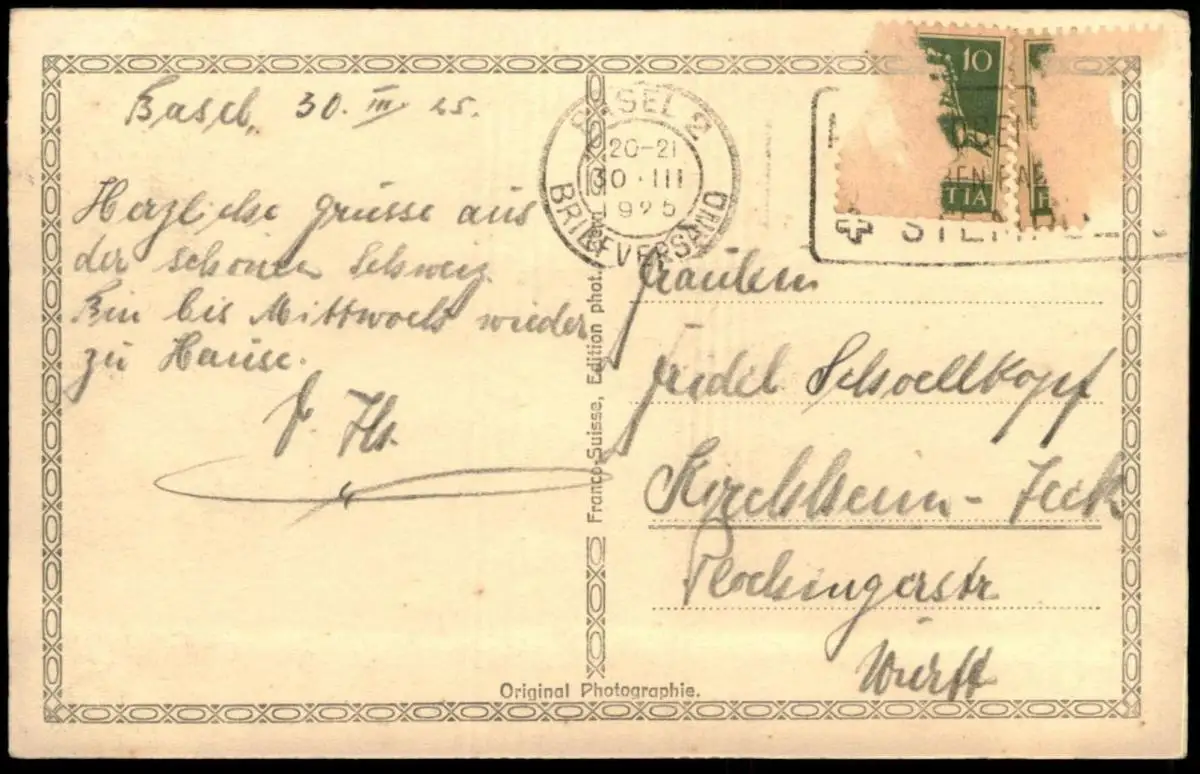 Basel, 30. III 25.
Herzliche Grüsse aus
der schönen Schweiz.
Bin bis Mittwoch wieder
zu Hause.
BASEL 2
20-21
30·III
1925
BRIEFVERSAND
10
TIA
H
STEMPEL
Fräulein
Friedel Schoellkopf
Kirchheim-Teck
Plochingerstr
Württ
Franco-Suisse, Edition phot., Bern
Original Photographie.